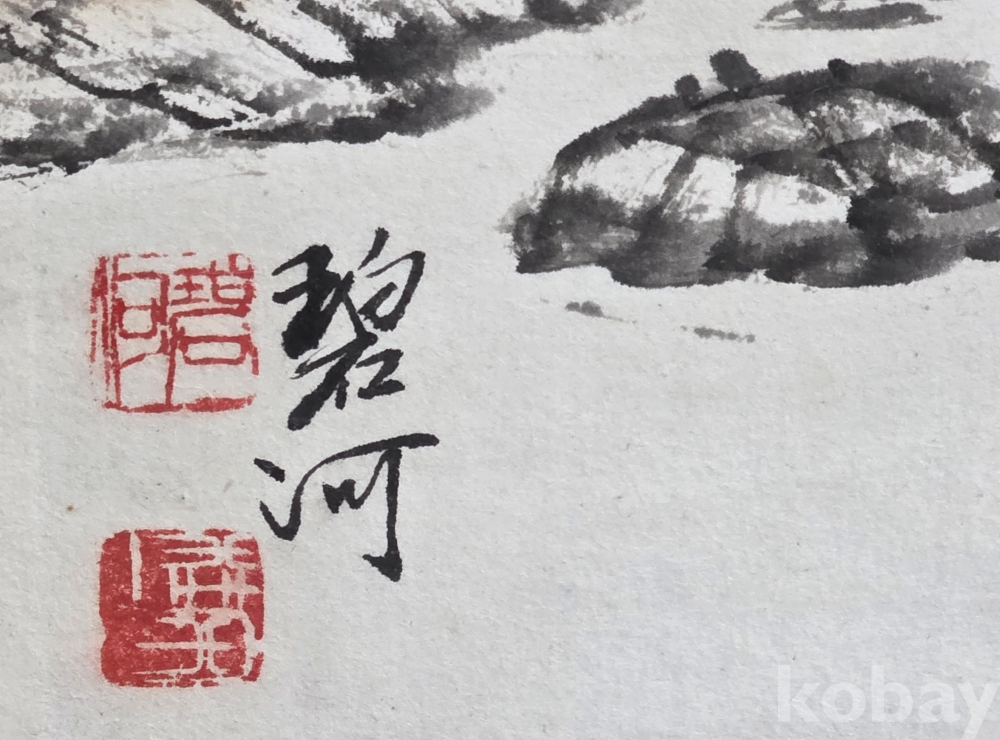 碧河
碧河
kobay